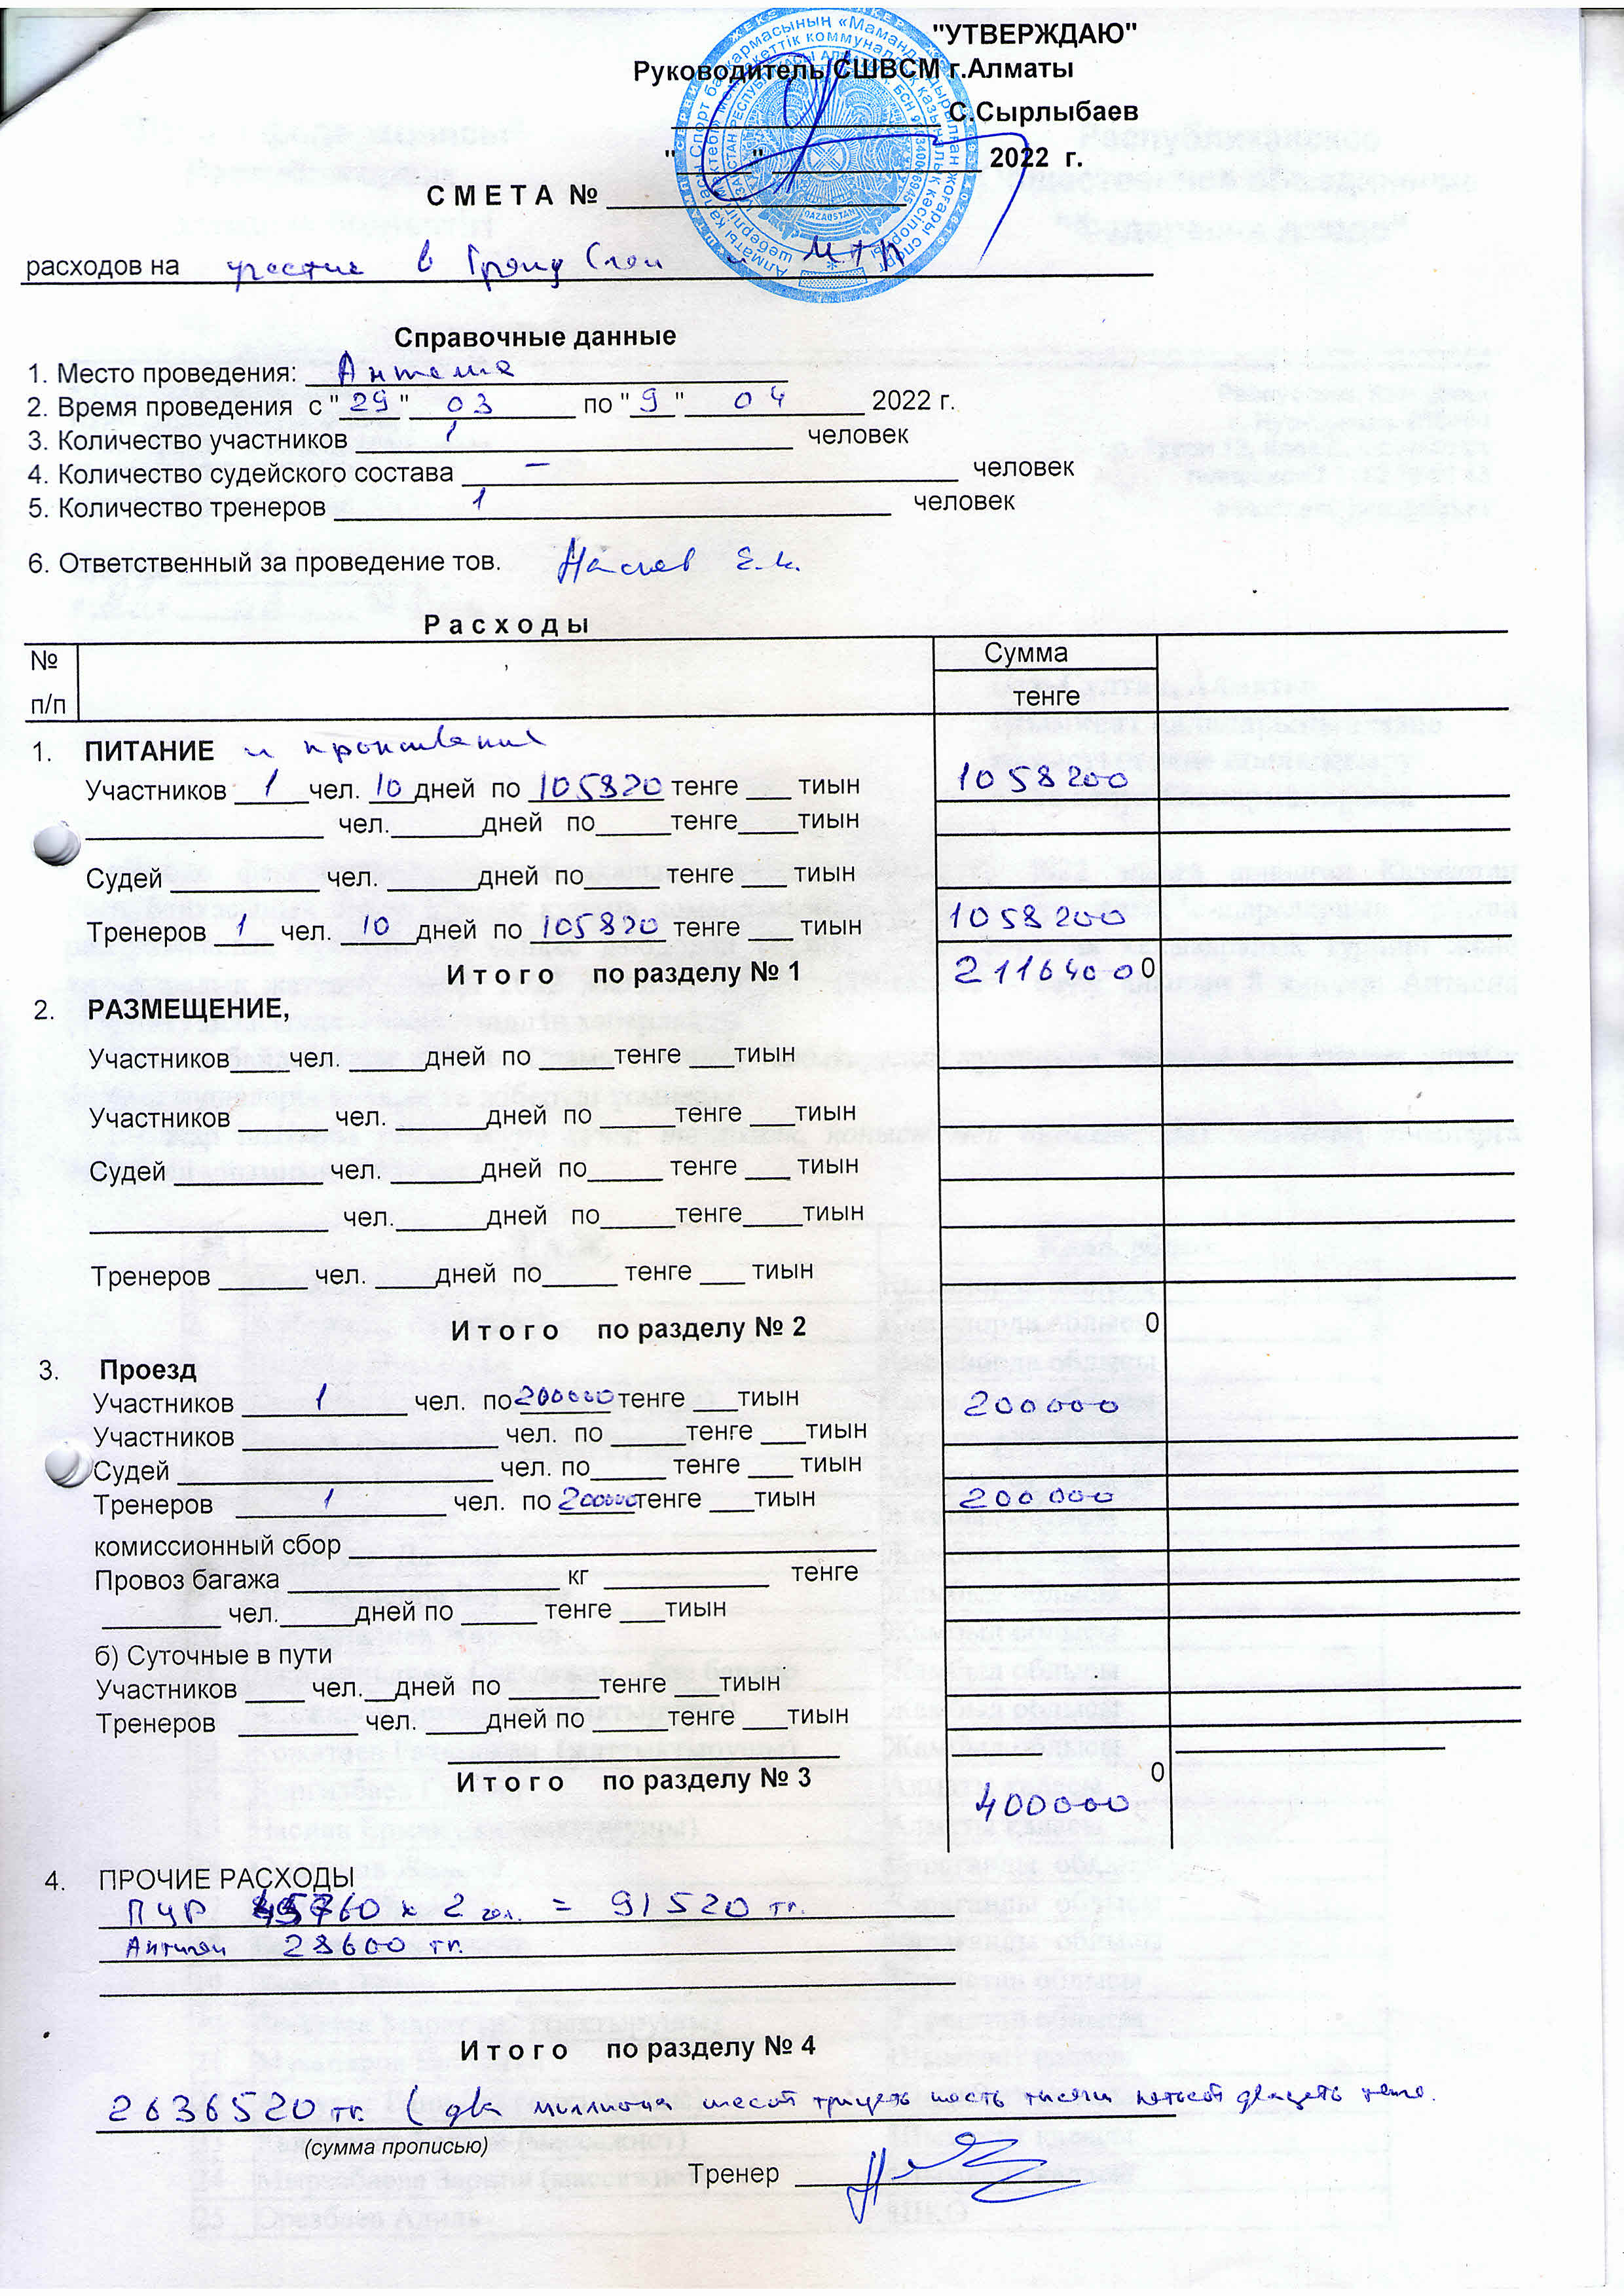 "УТВЕРЖДАЮ"
Руководитель СШВСМ г.Алматы
С.Сырлыбаев
"___" ___ 2022 г.
С М Е Т А №
расходов на участие в Гранд Слем и МТР
Справочные данные
1. Место проведения: Анталия
2. Время проведения с "29" 03 по "9" 04 2022 г.
3. Количество участников 1 человек
4. Количество судейского состава – человек
5. Количество тренеров 1 человек
6. Ответственный за проведение тов. Насиев Е.К.
Р а с х о д ы
№ п/п
Сумма
тенге
1. ПИТАНИЕ и проживание
Участников 1 чел. 10 дней по 105820 тенге ___ тиын 1058200
___ чел.___дней по___тенге___тиын
Судей ___ чел. ___дней по___ тенге ___ тиын
Тренеров 1 чел. 10 дней по 105820 тенге ___ тиын 1058200
И т о г о по разделу № 1 2116400 0
2. РАЗМЕЩЕНИЕ,
Участников___чел. ___дней по ___тенге ___тиын
Участников ___ чел. ___дней по ___тенге ___тиын
Судей ___ чел. ___дней по___ тенге ___ тиын
___ чел.___дней по___тенге___тиын
Тренеров ___ чел. ___дней по___ тенге ___ тиын
И т о г о по разделу № 2 0
3. Проезд
Участников 1 чел. по 200000 тенге ___тиын 200000
Участников ___ чел. по ___тенге ___тиын
Судей ___ чел. по___ тенге ___ тиын
Тренеров 1 чел. по 200000 тенге ___тиын 200 000
комиссионный сбор ___
Провоз багажа ___ кг ___ тенге
___ чел.___дней по ___ тенге ___тиын
б) Суточные в пути
Участников ___ чел.__дней по ___тенге ___тиын
Тренеров ___ чел. ___дней по ___тенге ___тиын
И т о г о по разделу № 3 0
400000
4. ПРОЧИЕ РАСХОДЫ
ПЦР 45760 х 2 чел. = 91520 тг.
Антиген 28600 тг.
И т о г о по разделу № 4
2636520 тг. ( два миллиона шесот трицеть шесть тысячи пятьсот двацеть тенге.
(сумма прописью)
Тренер